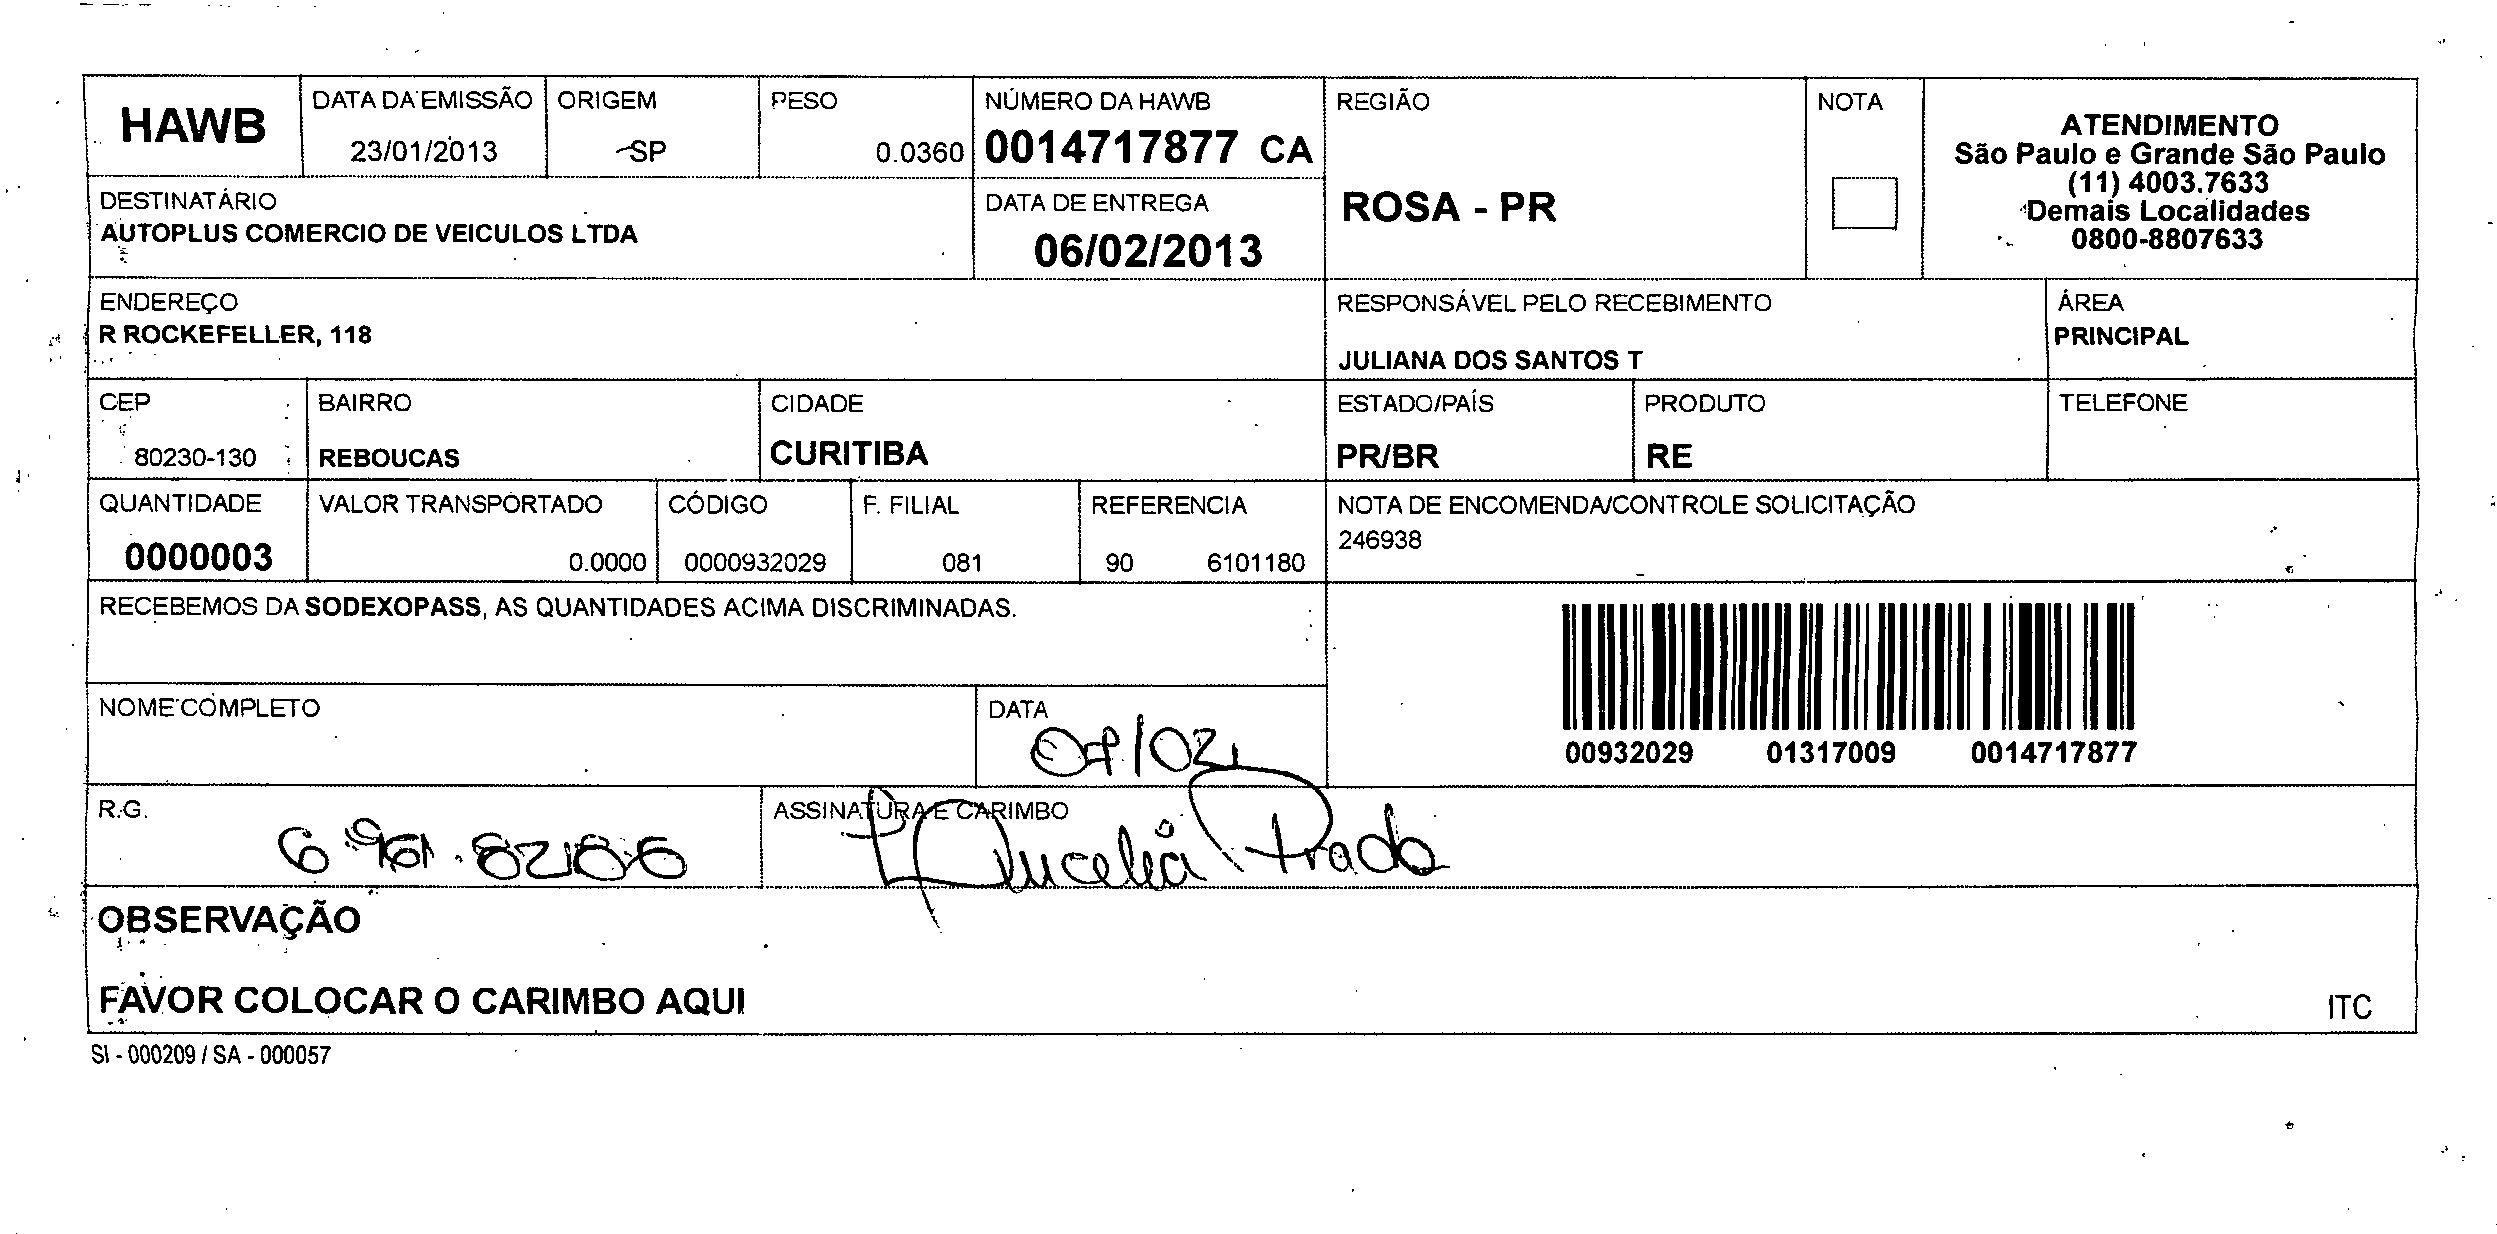 HAWB
DATA DA EMISSÃO
23/01/2013
ORIGEM
SP
PESO
0.0360
NÚMERO DA HAWB
0014717877 CA
REGIÃO
ROSA - PR
NOTA
ATENDIMENTO
São Paulo e Grande São Paulo
(11) 4003.7633
Demais Localidades
0800-8807633
DESTINATÁRIO
AUTOPLUS COMERCIO DE VEICULOS LTDA
DATA DE ENTREGA
06/02/2013
ENDEREÇO
R ROCKEFELLER, 118
RESPONSÁVEL PELO RECEBIMENTO
JULIANA DOS SANTOS T
ÁREA
PRINCIPAL
CEP
80230-130
BAIRRO
REBOUCAS
CIDADE
CURITIBA
ESTADO/PAÍS
PR/BR
PRODUTO
RE
TELEFONE
QUANTIDADE
0000003
VALOR TRANSPORTADO
0.0000
CÓDIGO
0000932029
F. FILIAL
081
REFERENCIA
90 6101180
NOTA DE ENCOMENDA/CONTROLE SOLICITAÇÃO
246938
RECEBEMOS DA SODEXOPASS, AS QUANTIDADES ACIMA DISCRIMINADAS.
00932029 01317009 0014717877
NOME COMPLETO
DATA
07/02
R.G.
ASSINATURA E CARIMBO
Prado
OBSERVAÇÃO
FAVOR COLOCAR O CARIMBO AQUI
ITC
SI - 000209 / SA - 000057